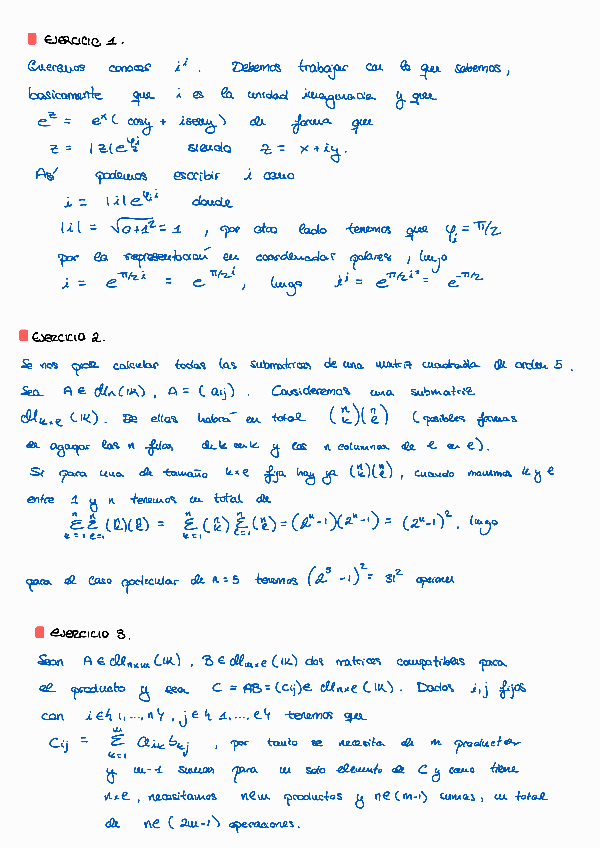 EJERCICIO 1.
Queremos conocer i^i. Debemos trabajar con lo que sabemos,
basicamente que i es la unidad imaginaria y que
e^z = e^x (cosy + iseny) de forma que
z = |z|e^{φ_z i} siendo z = x+iy.
Así podemos escribir i como
i = |i|e^{φ_i i} donde
|i| = √(0+1²) = 1 , por otro lado tenemos que φ_i = π/2
por la representación en coordenadas polares, luego
i = e^{π/2 i} = e^{π/2 i}, luego i^i = e^{π/2 i²} = e^{-π/2}
EJERCICIO 2.
Se nos pide calcular todas las submatrices de una matriz cuadrada de orden 5.
Sea A ∈ M_n(K), A = (aij). Consideremos una submatriz
M_{k×l}(K). De ellas habrá en total (n k)(n l) (posibles formas
de agrupar las n filas de k en k y las n columnas de l en l).
Si para una de tamaño k×l fija hay ya (n k)(n l), cuando movemos k y l
entre 1 y n tenemos un total de
Σ_{k=1}^n Σ_{l=1}^n (n k)(n l) = Σ_{k=1}^n (n k) Σ_{l=1}^n (n l) = (2^n-1)(2^n-1) = (2^n-1)². luego
para el caso particular de n=5 tenemos (2^5-1)² = 31² opciones
EJERCICIO 3.
Sean A ∈ M_{n×m}(K), B ∈ M_{m×l}(K) dos matrices compatibles para
el producto y sea C = AB = (Cij) ∈ M_{n×l}(K). Dados i,j fijos
con i∈{1,...,n}, j∈{1,...,l} tenemos que
Cij = Σ_{k=1}^m a_{ik} b_{kj} , por tanto se necesita de m productos
y m-1 sumas para un solo elemento de C y como tiene
n×l, necesitamos nlm productos y nl(m-1) sumas, un total
de nl(2m-1) operaciones.